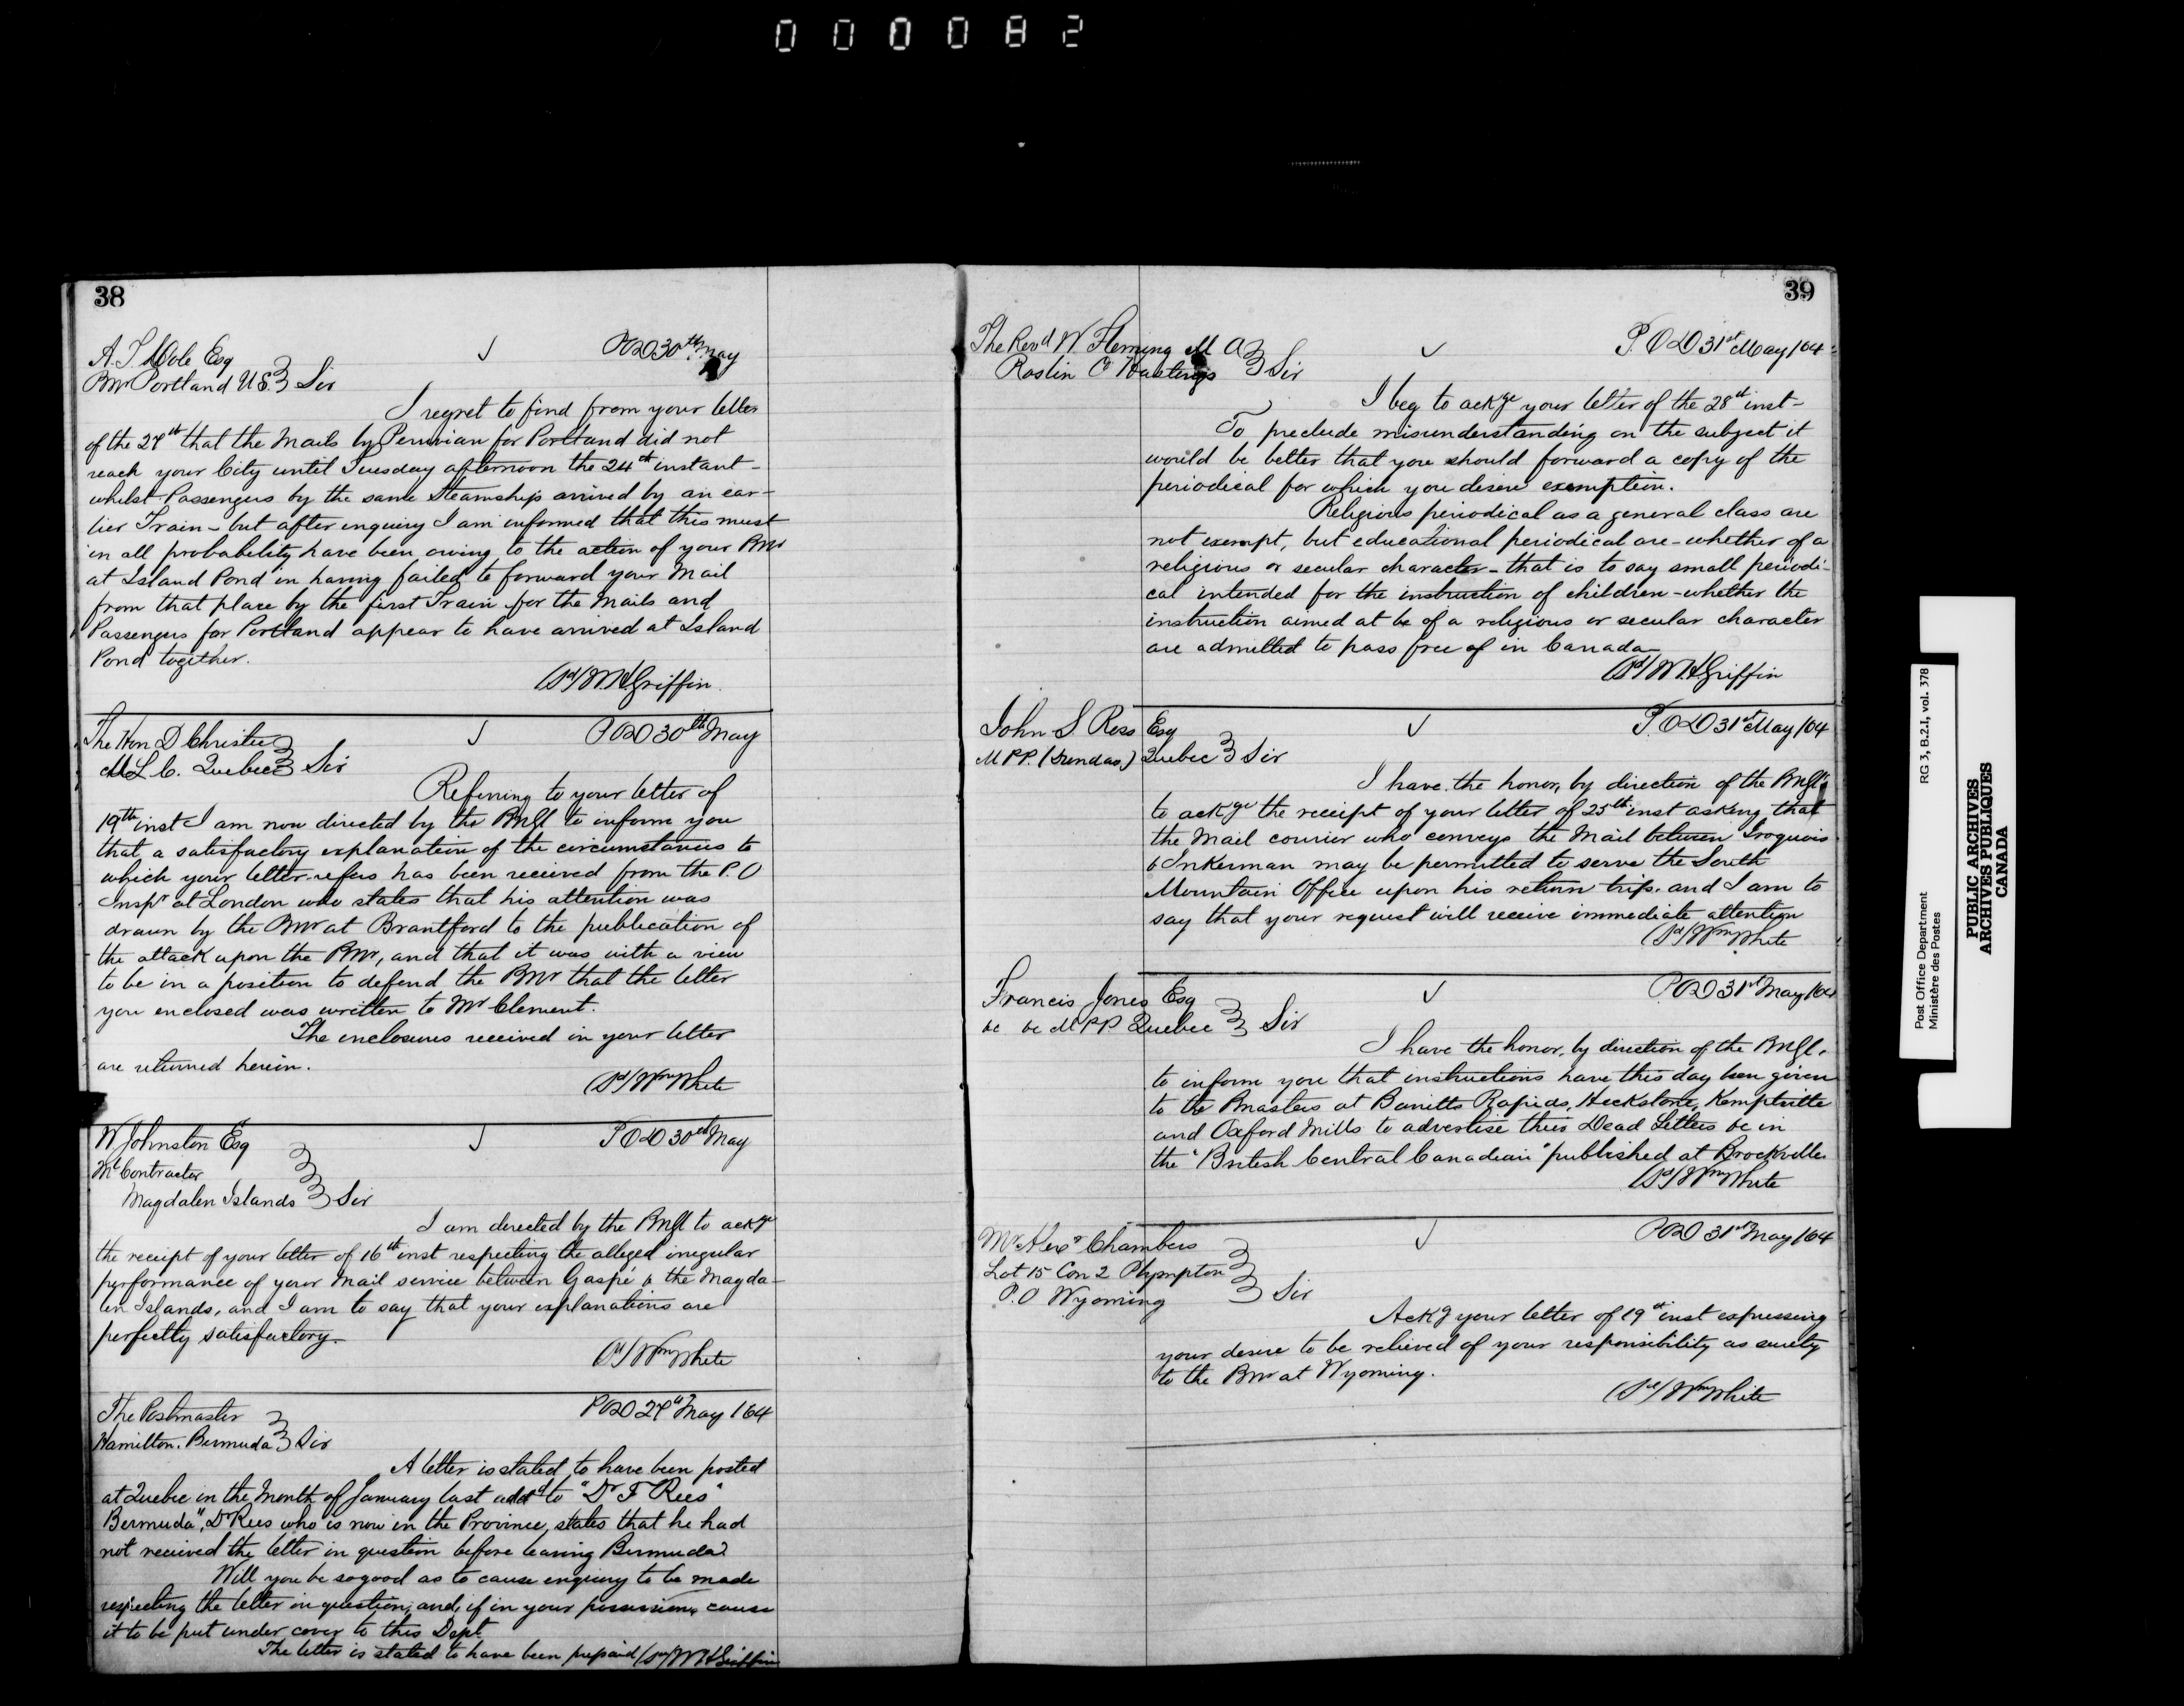 000082
38
A. T. Dole Esq
PMr Portland U.S. Sir
POD 30th May
I regret to find from your letter
of the 27th that the Mails by Peruvian for Portland did not
reach your City until Tuesday afternoon the 24th instant -
whilst Passengers by the same Steamship arrived by an ear-
lier Train - but after enquiry I am informed that this must
in all probability have been owing to the action of your PMr
at Island Pond in having failed to forward your Mail
from that place by the first Train for the Mails and
Passengers for Portland appear to have arrived at Island
Pond together.
(Sd/ W H Griffin
The Hon D Christie
MLC. Quebec Sir
POD 30th May
Referring to your letter of
19th inst I am now directed by the PMGl to inform you
that a satisfactory explanation of the circumstances to
which your letter refers has been received from the P.O
Inspr at London who states that his attention was
drawn by the PMr at Brantford to the publication of
the attack upon the PMr, and that it was with a view
to be in a position to defend the PMr that the letter
you enclosed was written to Mr Clement.
The enclosures received in your letter
are returned herein.
(Sd/ Wm White
W Johnston Esq
Ml Contractor
Magdalen Islands Sir
POD 30th May
I am directed by the PMGl to ackge
the receipt of your letter of 16th inst respecting the alleged irregular
performance of your Mail service between Gaspé & the Magda-
len Islands, and I am to say that your explanations are
perfectly satisfactory.
(Sd/ Wm White
The Postmaster
Hamilton. Bermuda Sir
POD 27th May /64
A letter is stated to have been posted
at Quebec in the Month of January last addd to "Dr F Rees"
Bermuda", Dr Rees who is now in the Province, states that he had
not received the letter in question before leaving Bermuda
Will you be so good as to cause enquiry to be made
respecting the letter in question, and, if in your possession, cause
it to be put under cover to this Dept.
The letter is stated to have been prepaid (Sd/ W H Griffin
39
The Revd W. Fleming M A
Roslin Co Hastings Sir
P.OD 31st May /64
I beg to ackge your letter of the 28th inst -
To preclude misunderstanding on the subject it
would be better that you should forward a copy of the
periodical for which you desire exemption.
Religious periodical as a general class are
not exempt, but educational periodical are - whether of a
religious or secular character - that is to say small periodi-
cal intended for the instruction of children - whether the
instruction aimed at be of a religious or secular character
are admitted to pass free of in Canada
(Sd/ W H Griffin
John S Ross Esq
M P P. (Dundas.) Quebec Sir
P.OD 31st May /64
I have the honor, by direction of the PMGl,
to ackge the receipt of your letter of 25th inst asking that
the Mail courier who conveys the Mail between Iroquois
& Inkerman may be permitted to serve the South
Mountain Office upon his return trip. and I am to
say that your request will receive immediate attention
(Sd/ Wm White
Francis Jones Esq
&c &c M P P. Quebec Sir
POD 31st May /64
I have the honor, by direction of the PMGl.
to inform you that instructions have this day been given
to the Pmasters at Burritts Rapids, Heckstone, Kemptville
and Oxford Mills to advertise their Dead Letters &c in
the "British Central Canadian" published at Brockville
(Sd/ Wm White
Mr Alexr Chambers
Lot 15 Con 2 Plympton
P.O Wyoming Sir
POD 31st May /64
Ackg your letter of 19th inst expressing
your desire to be relieved of your responsibility as surety
to the PMr at Wyoming.
(Sd/ Wm White
Post Office Department RG 3, B.2.I, vol. 378
Ministère des Postes
PUBLIC ARCHIVES
ARCHIVES PUBLIQUES
CANADA